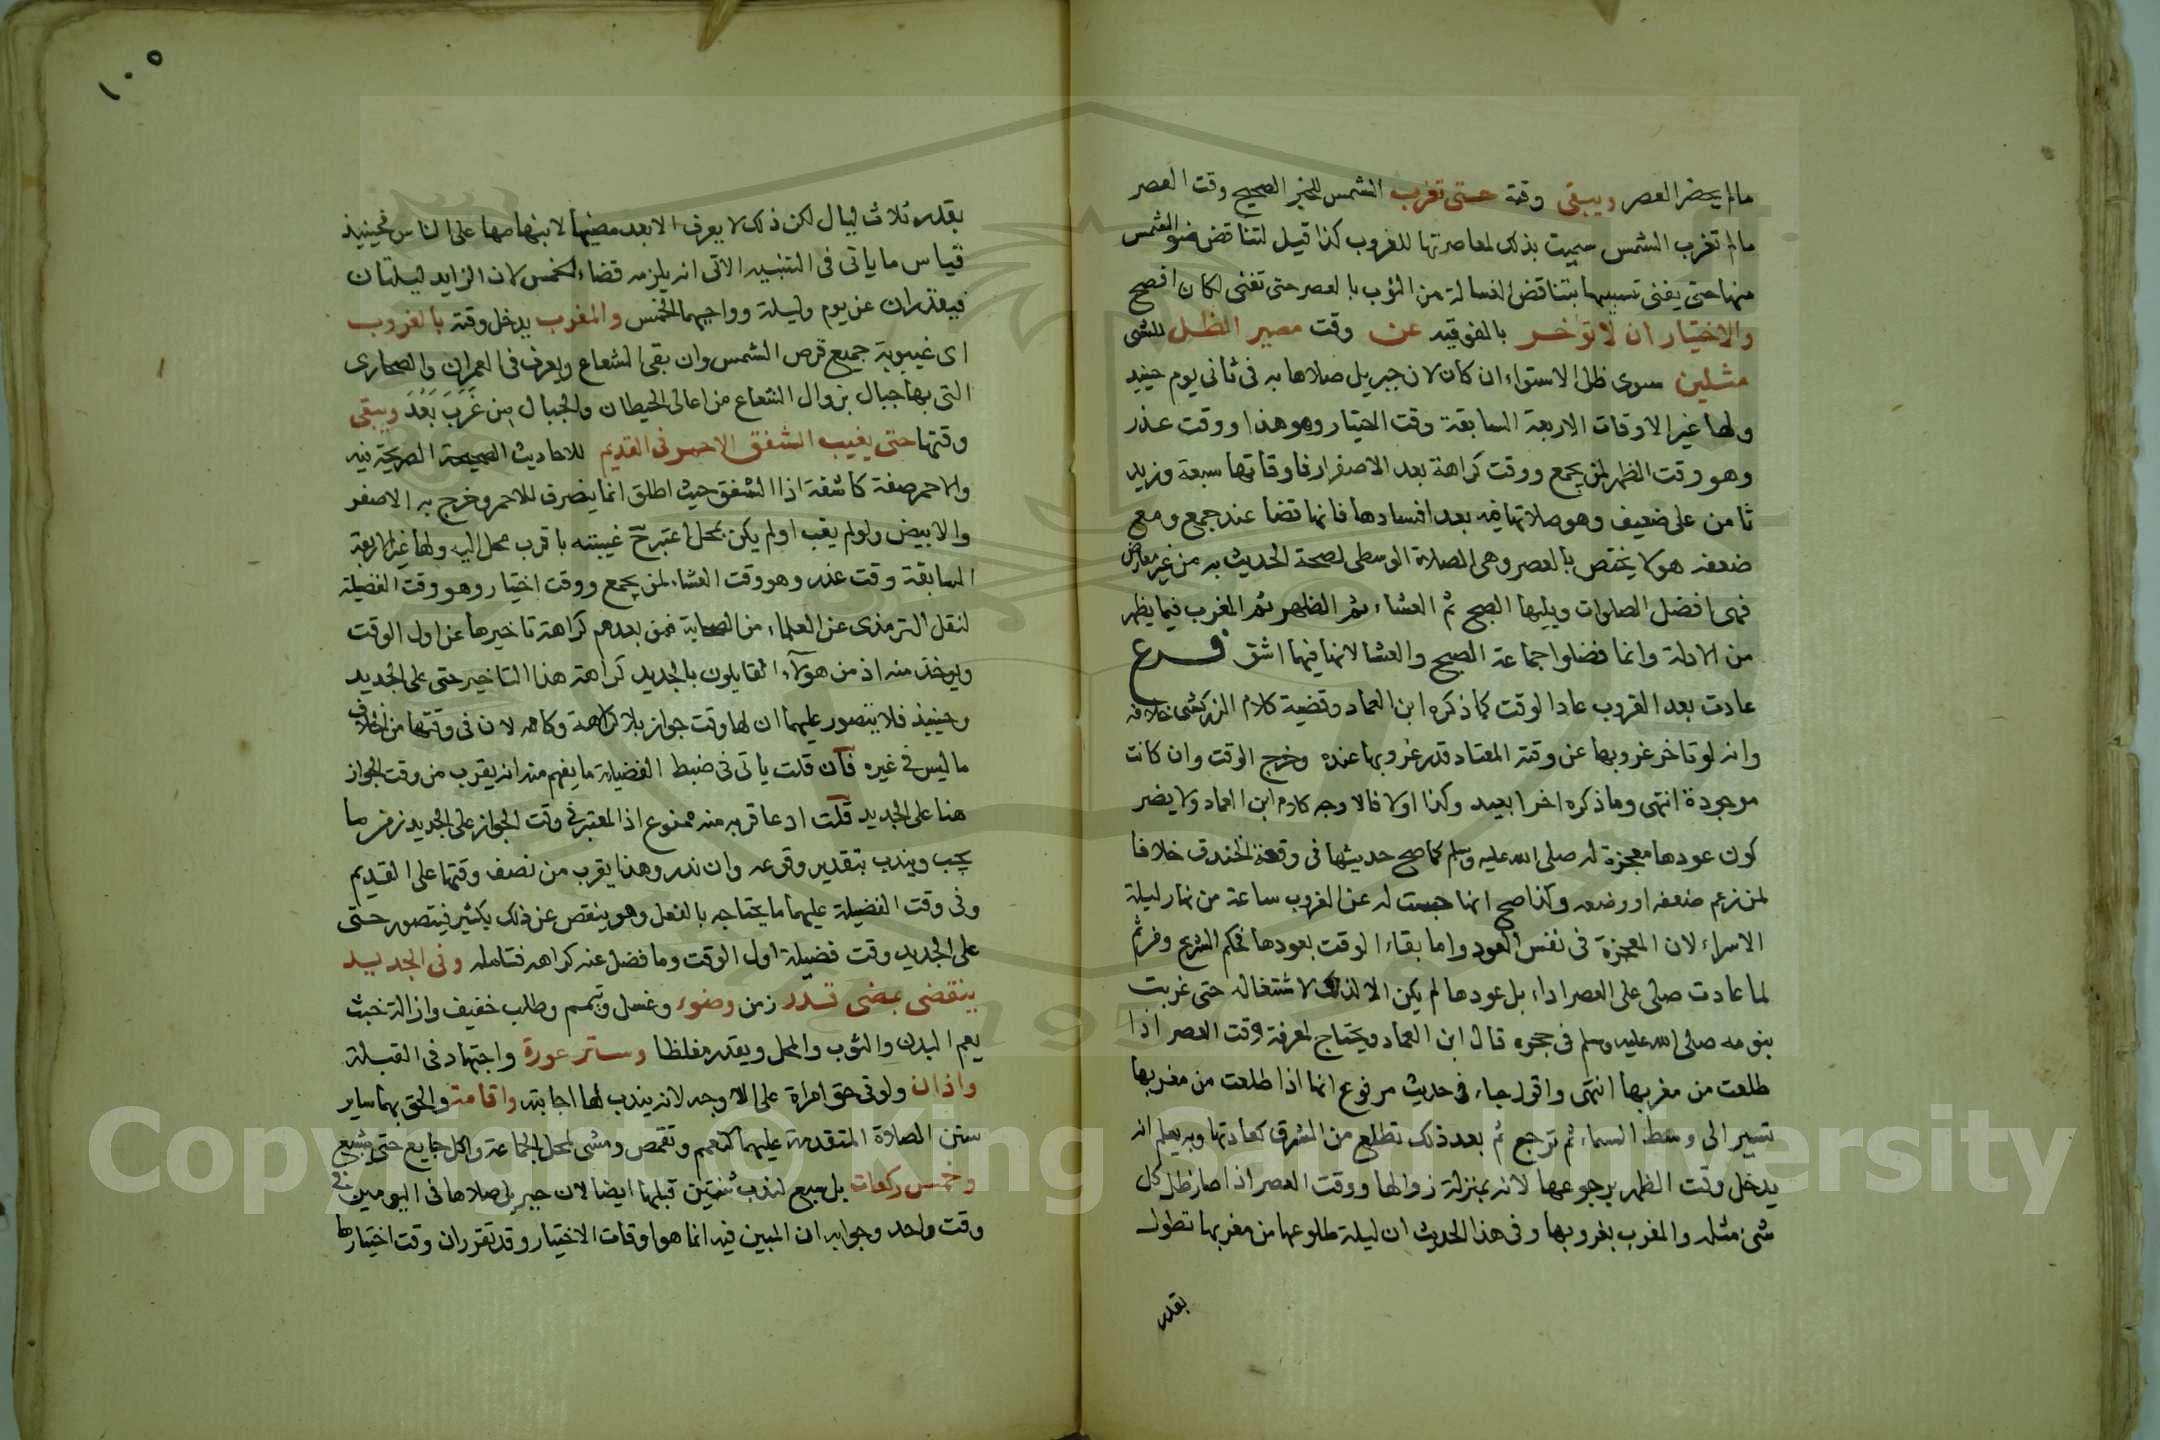 مالم يحضر العصر ويبقى وقته حتى تغرب الشمس للخبر الصحيح وقت العصر
مالم تغرب الشمس سميت بذلك لمعاصرتها للغروب كذا قيل لتناقص ضوء الشمس
منها حتى يفنى تسبيبها بتناقص الغسالة من الثوب بالعصر حتى تفنى لكان افصح
والاختيار ان لا توخر بالفوقيه عن وقت مصير الظل للشى
مثلين سوى ظل الاستواء ان كان لان جبريل صلاها به فى ثانى يوم حينيد
ولها غير الاوقات الاربعة السابقة وقت اختيار وهو هذا ووقت عذر
وهو وقت الظهر لمن يجمع ووقت كراهة بعد الاصفرار فاوقاتها سبعة وزيد
ثامن على ضعيف وهو صلاتها فيه بعد افسادها فانها قضا عند جمع ومع
ضعفه هو لا يختص بالعصر وهى الصلاة الوسطى لصحة الحديث به من غير معارض
فهى افضل الصلوات ويليها الصبح ثم العشاء ثم الظهر ثم المغرب فيما يظهر
من الادلة وانما فضلوا جماعة الصبح والعشا لانها فيها اشق فرع
عادت بعد الغروب عاد الوقت كما ذكره ابن العماد وقضية كلام الزركشى خلافه
وانه لو تاخر غروبها عن وقته المعتاد قدر غروبها عنده وخرج الوقت وان كانت
موجودة انتهى وما ذكره اخرا بعيد وكذا اولا فالاوجه كلام ابن العماد ولا يضر
كون عودها معجزة له صلى الله عليه وسلم كما صح حديثها فى وقعة الخندق خلافا
لمن زعم ضعفه او وضعه وكذا صح انها حبست له عن الغروب ساعة من نهار ليلة
الاسراء لان المعجزة فى نفس العود واما بقاء الوقت بعودها فبحكم الشرع ومن ثم
لما عادت صلى على العصر اداء بل عودها لم يكن الا لذلك لاشتغاله حتى غربت
بنومه صلى الله عليه وسلم فى حجره قال ابن العماد ويحتاج لمعرفة وقت العصر اذا
طلعت من مغربها انتهى واقول جاء فى حديث مرفوع انها اذا طلعت من مغربها
تسير الى وسط السماء ثم ترجع ثم بعد ذلك تطلع من المشرق كعادتها وبه يعلم انه
يدخل وقت الظهر برجوعها لانه بمنزلة زوالها ووقت العصر اذا صار ظل كل
شئ مثله والمغرب بغروبها وفى هذا الحديث ان ليلة طلوعها من مغربها تطول
بقدر
١٠٥
بقدر ثلاث ليال لكن ذلك لا يعرف الا بعد مضيها لانبهامها على الناس فحينيذ
قياس ما ياتى فى التنبيه الاتى انه يلزمه قضاء الخمس لان الزايد ليلتان
فيقدران عن يوم وليلة وواجبهما الخمس والمغرب يدخل وقته بالغروب
اى غيبوبة جميع قرص الشمس وان بقى الشعاع ويعرف فى العمران والصحارى
التى بها جبال بزوال الشعاع من اعالى الحيطان والجبال من غَرَبَ بَعُدَ ويبقى
وقتها حتى يغيب الشفق الاحمر فى القديم للاحاديث الصحيحة الصريحة فيه
والاحمر صفة كاشفة اذ الشفق حيث اطلق انما ينصرف للاحمر وخرج به الاصفر
والابيض ولو لم يغب او لم يكن بمحل اعتبر ح غيبته باقرب محل اليه ولها غير الاربعة
السابقة وقت عذر وهو وقت العشاء لمن يجمع ووقت اختيار وهو وقت الفضيلة
لنقل الترمذى عن العلماء من الصحابة فمن بعدهم كراهة تاخيرها عن اول الوقت
ويوخذ منه اذ من هولاء القايلون بالجديد كراهة هذا التاخير حتى على الجديد
وحينيذ فلا يتصور عليهما ان لها وقت جواز بلا كراهة وكانه لان فى وقتها من الخلاف
ما ليس فى غيره فان قلت ياتى فى ضبط الفضيلة ما يفهم منه انه يقرب من وقت الجواز
هنا على الجديد قلت ادعا قربه منه ممنوع اذ المعتبر فى وقت الجواز على الجديد زمن ما
يجب ويندب بتقدير وقوعه وان ندر وهذا يقرب من نصف وقتها على القديم
وفى وقت الفضيلة عليهما ما يحتاجه بالفعل وهو ينقص عن ذلك بكثير فيتصور حتى
على الجديد وقت فضيلة اول الوقت وما فضل عنه كراهه فتامله وفى الجديد
ينقضى بمضى قدر زمن وضوء وغسل وتيمم وطلب خفيف وازالة خبث
يعم البدن والثوب والمحل ويقدر مغلظا وستر عورة واجتهاد فى القبلة
واذان ولو فى حق امراة على الاوجه لانه يندب لها اجابته واقامة والحق بهما ساير
سنن الصلاة المتقدمة عليهما كتعمم وتقمص ومشى لمحل الجماعة واكل جايع حتى يشبع
وخمس ركعات بل سبع لندب ثنتين قبلها ايضا لان جبريل صلاها فى اليومين فى
وقت واحد وجوابه ان المبين فيه انما هو اوقات الاختيار وقد تقرر ان وقت اختيارها
Copyright © King Saud University
1957